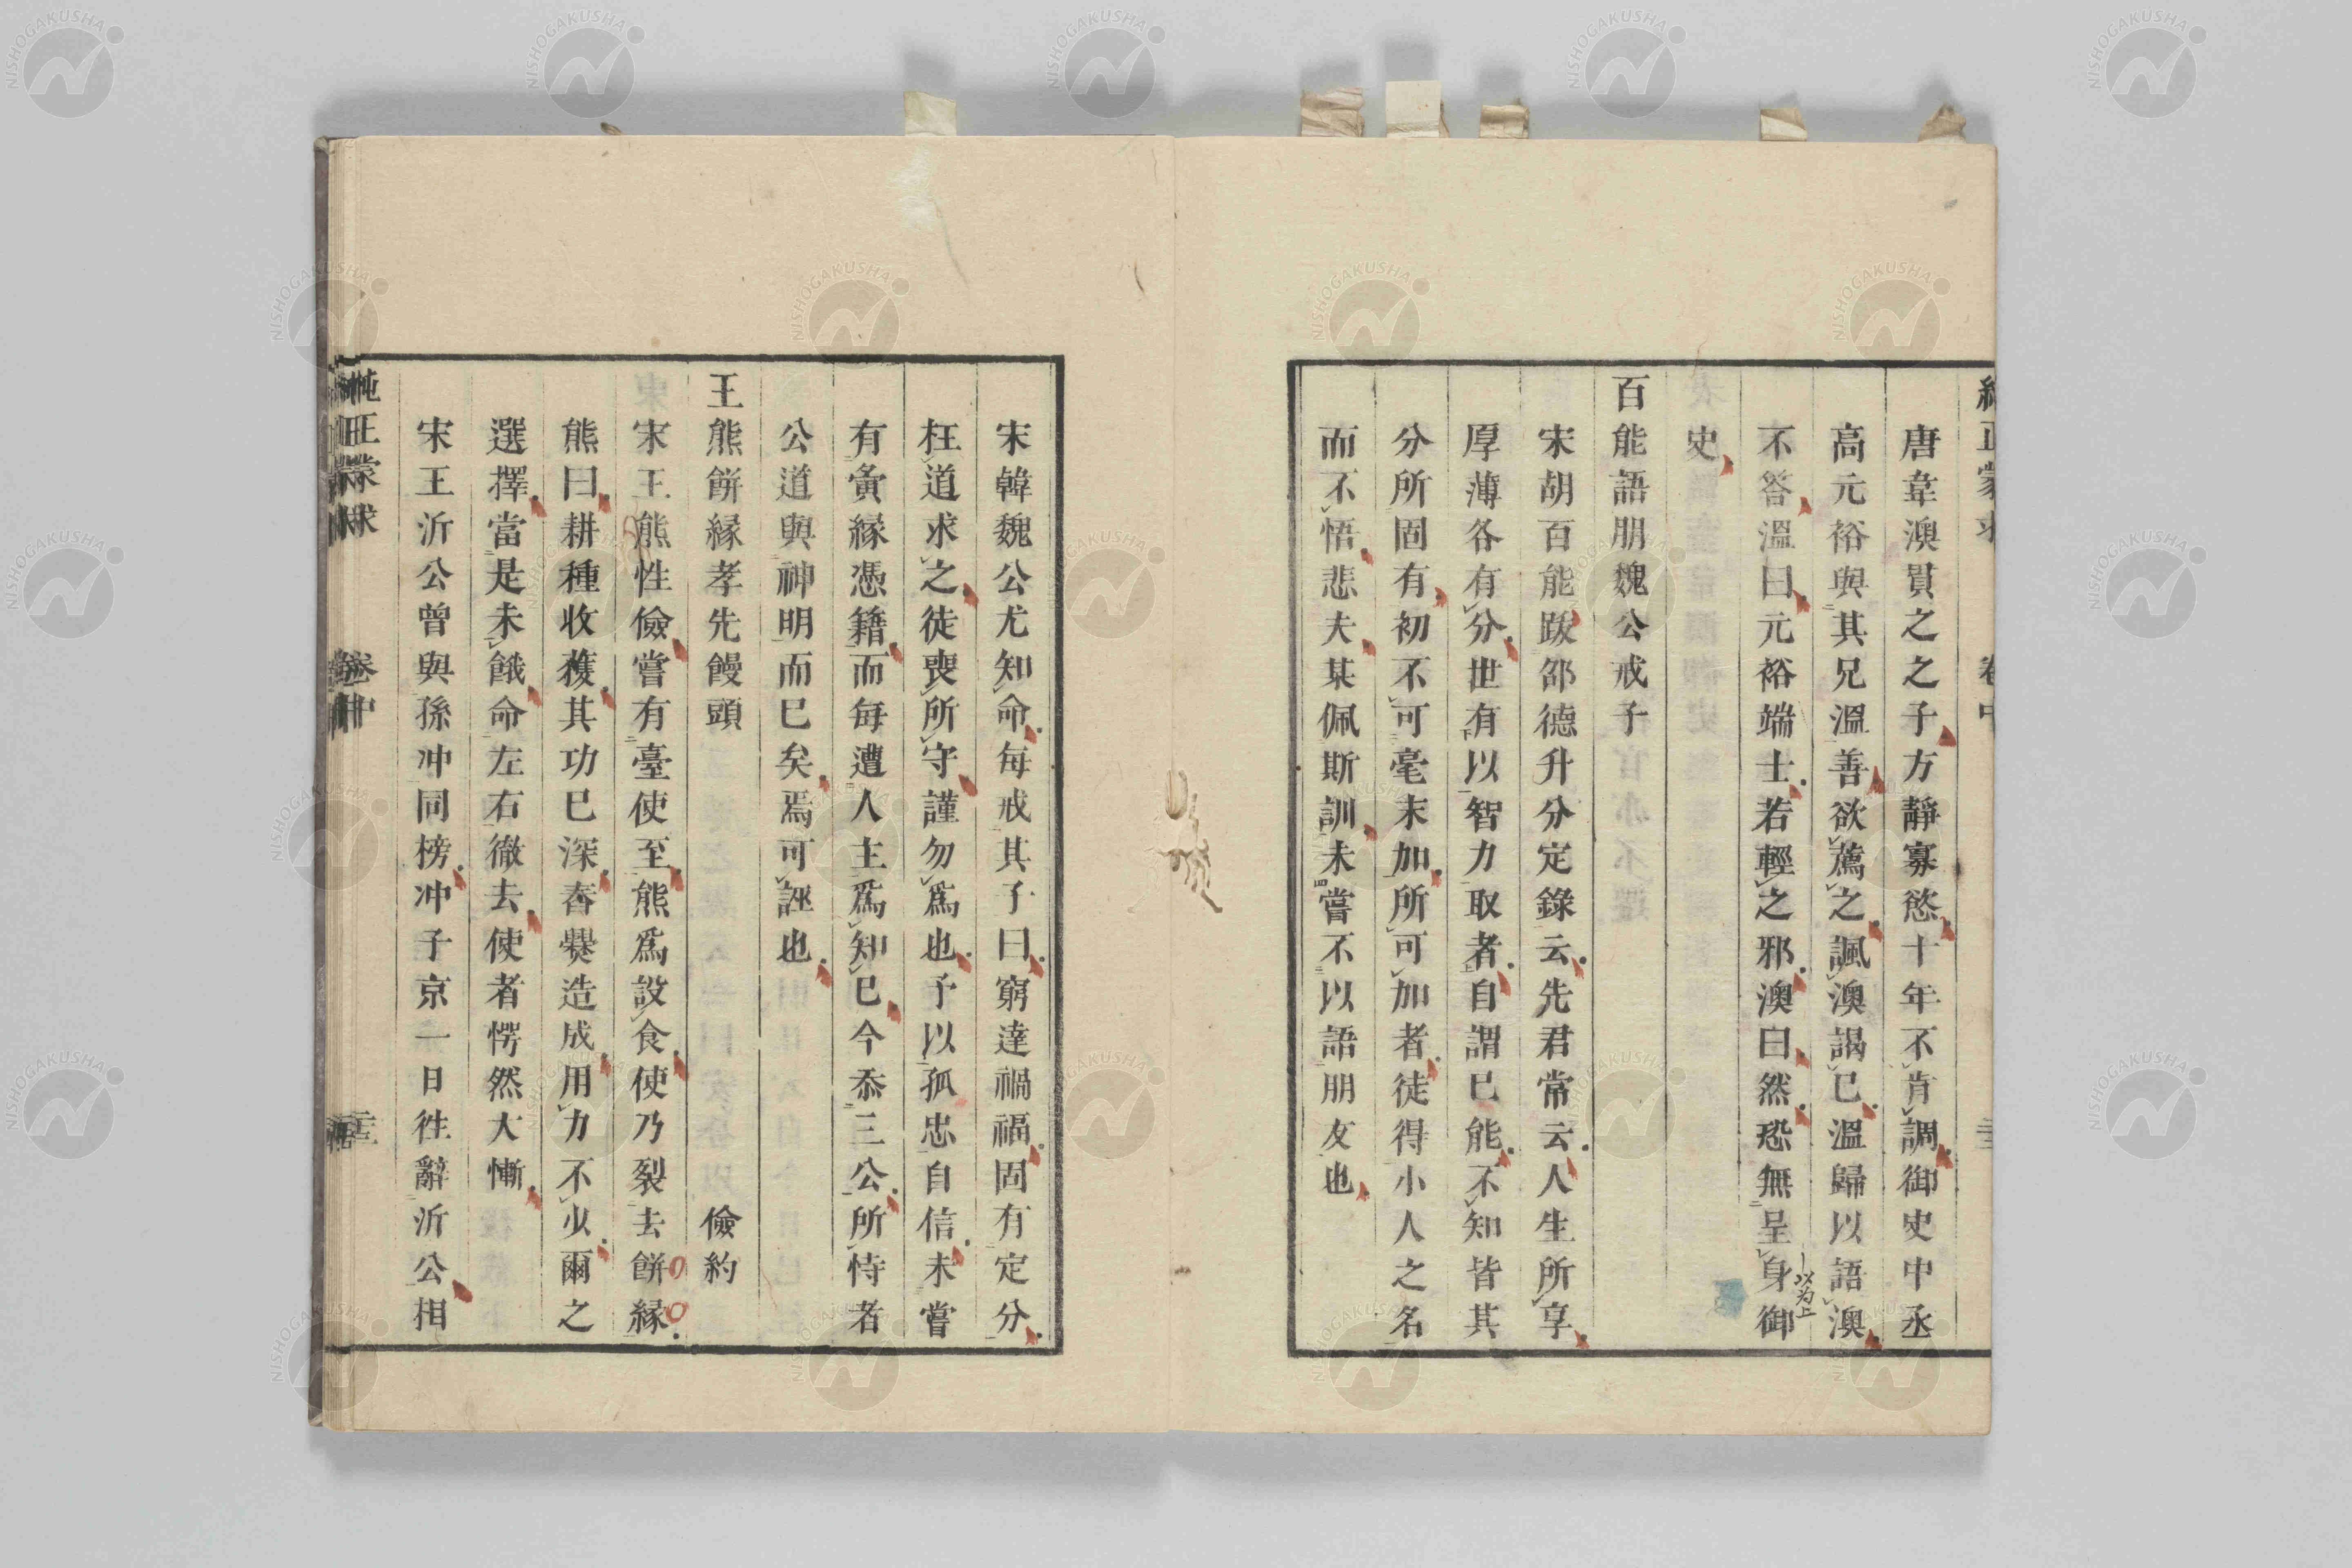 唐韋澳貫之之子方靜寡慾十年不肯調御史中丞
高元裕與其兄溫善欲薦之諷澳謁已溫歸以語澳
不答溫曰元裕端士若輕之邪澳曰然恐無呈身御
史
百能語朋魏公戒子
宋胡百能跋邵德升分定錄云先君常云人生所享
厚薄各有分世有以智力取者自謂已能不知皆其
分所固有初不可毫末加所可加者徒得小人之名
而不悟悲夫某佩斯訓未嘗不以語朋友也
宋韓魏公尤知命每戒其子曰窮達禍福固有定分
枉道求之徒喪所守謹勿爲也予以孤忠自信未嘗
有夤緣憑籍而每遭人主爲知已今忝三公所恃者
公道與神明而已矣焉可誣也
王熊餅緣孝先饅頭 儉約
宋王熊性儉嘗有臺使至熊爲設食使乃裂去餅緣
熊曰耕種收穫其功已深舂爨造成用力不少爾之
選擇當是未餓命左右徹去使者愕然大慚
宋王沂公曾與孫冲同榜冲子京一日徃辭沂公相
純正蒙求 卷中
NISHOGAKUSHA